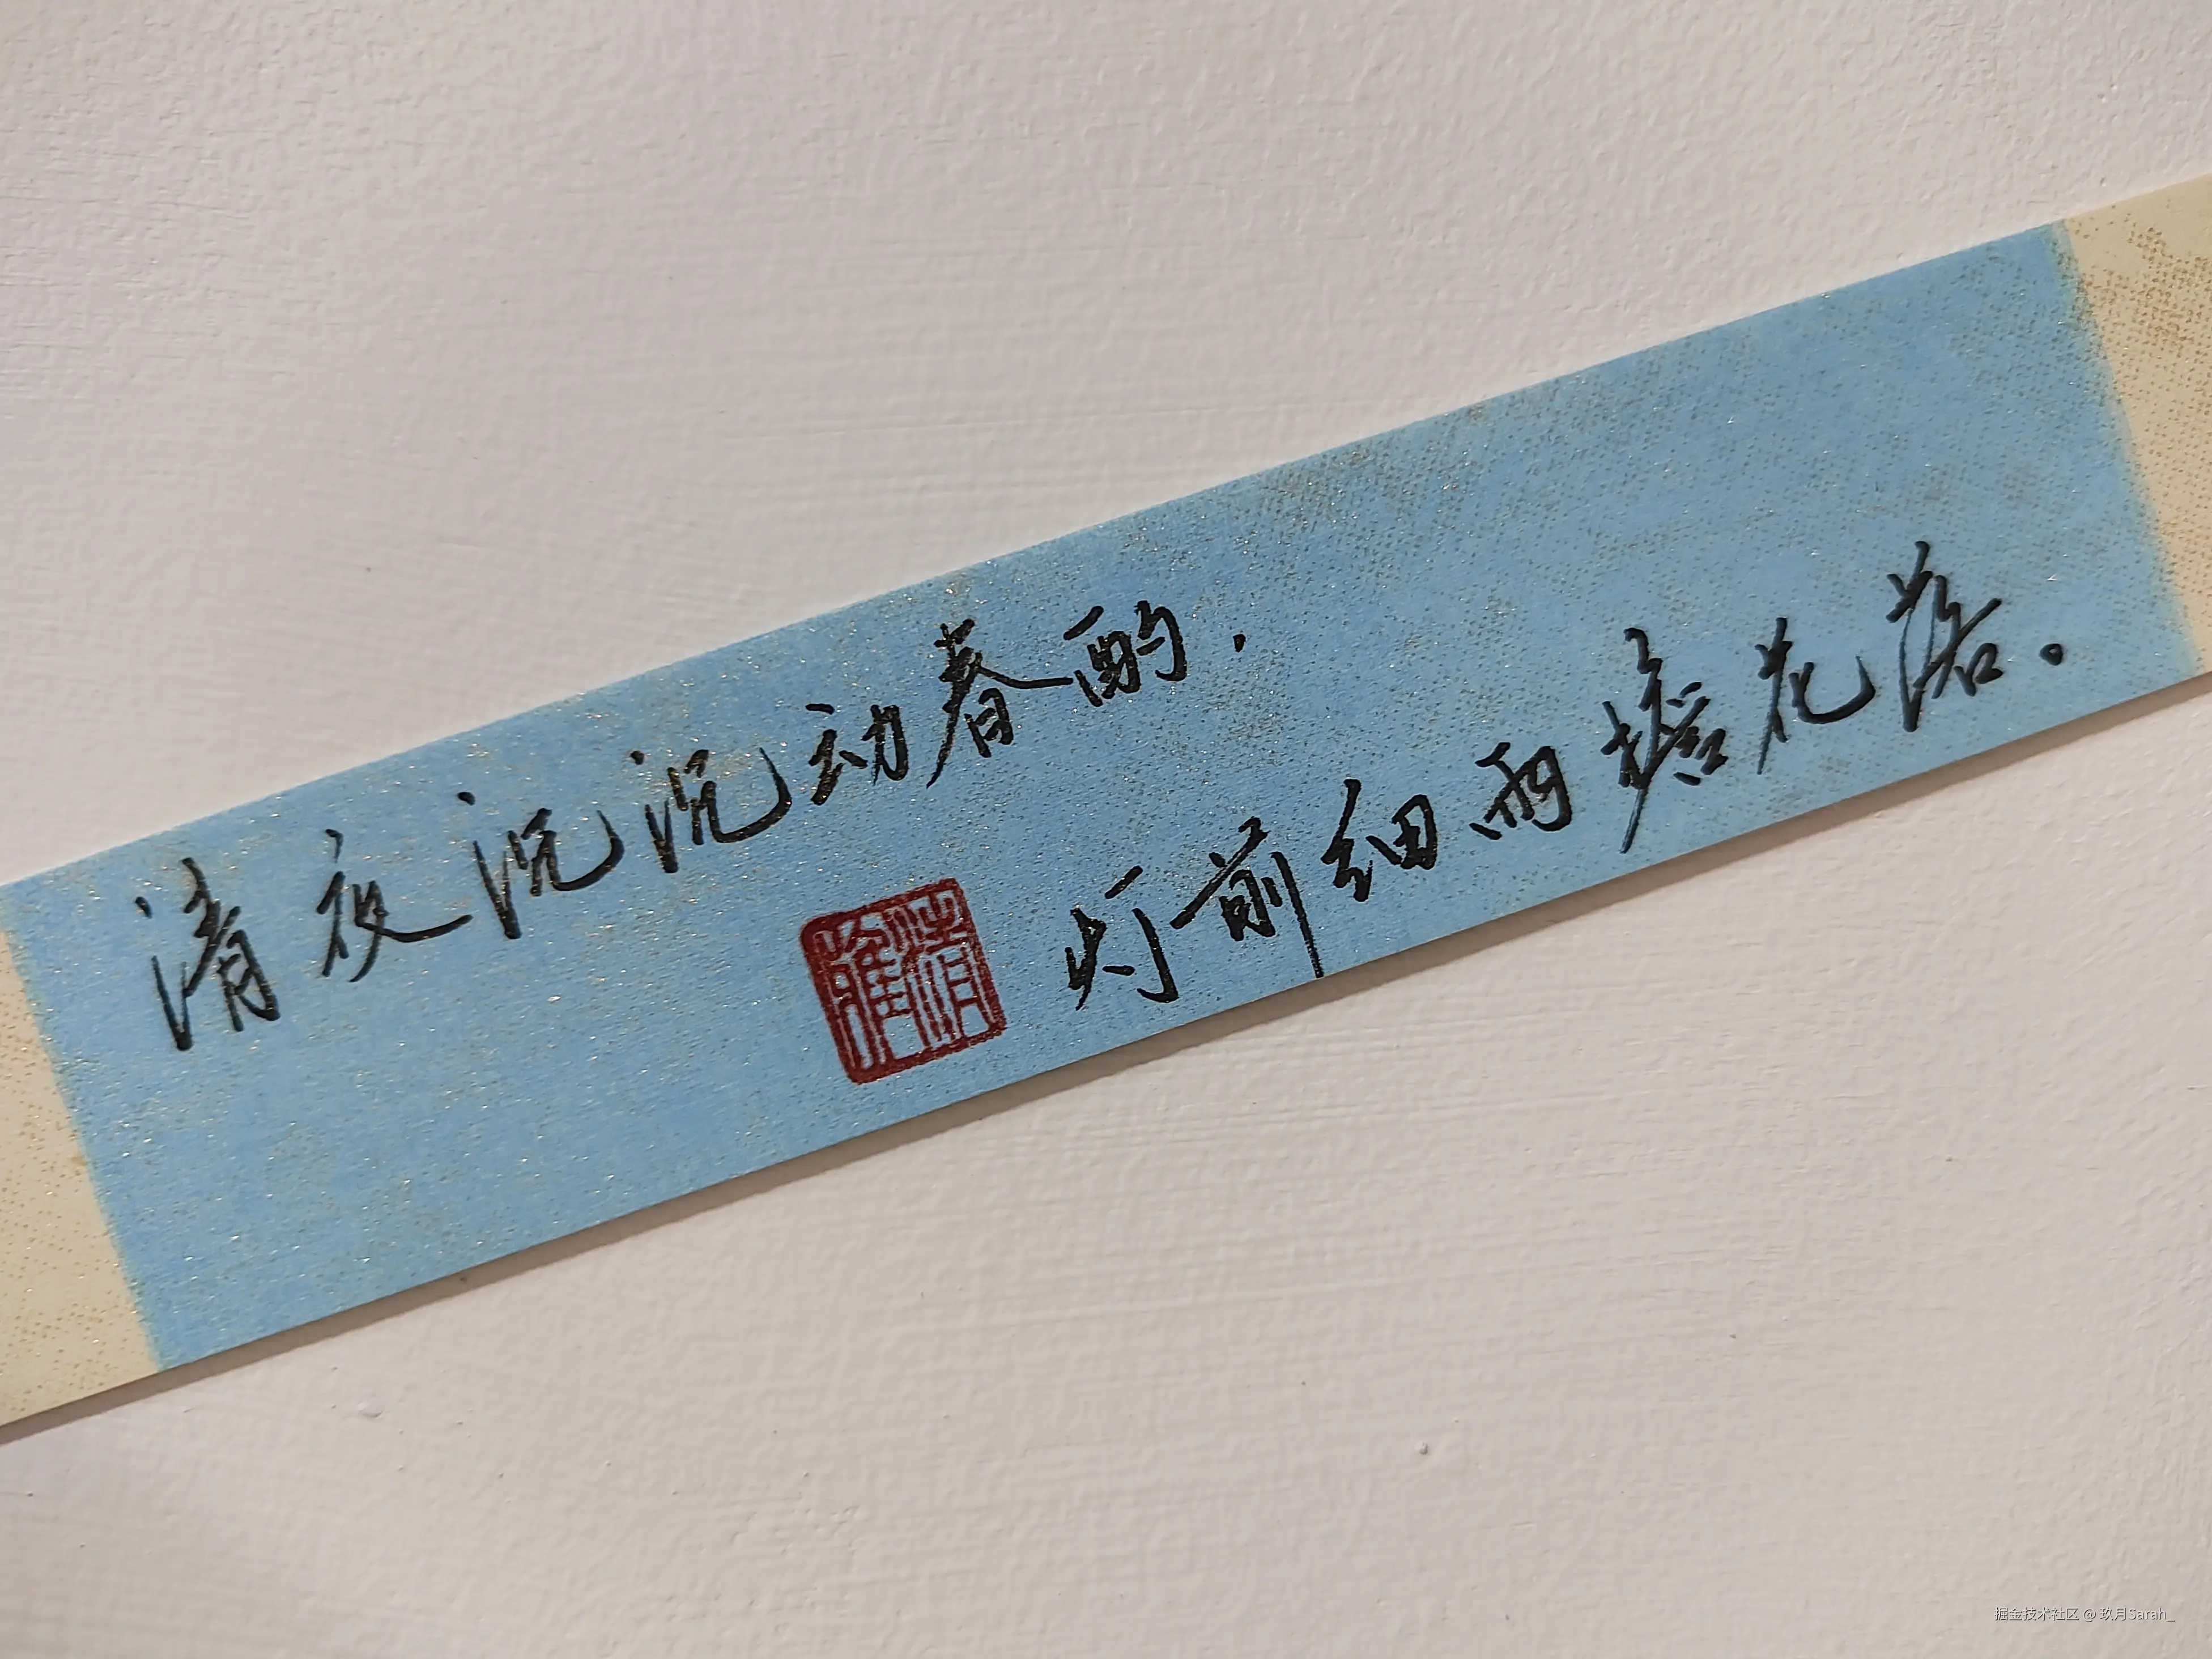 清夜沉沉动春酌，
灯前细雨檐花落。
掘金技术社区 @ 玖月Sarah_